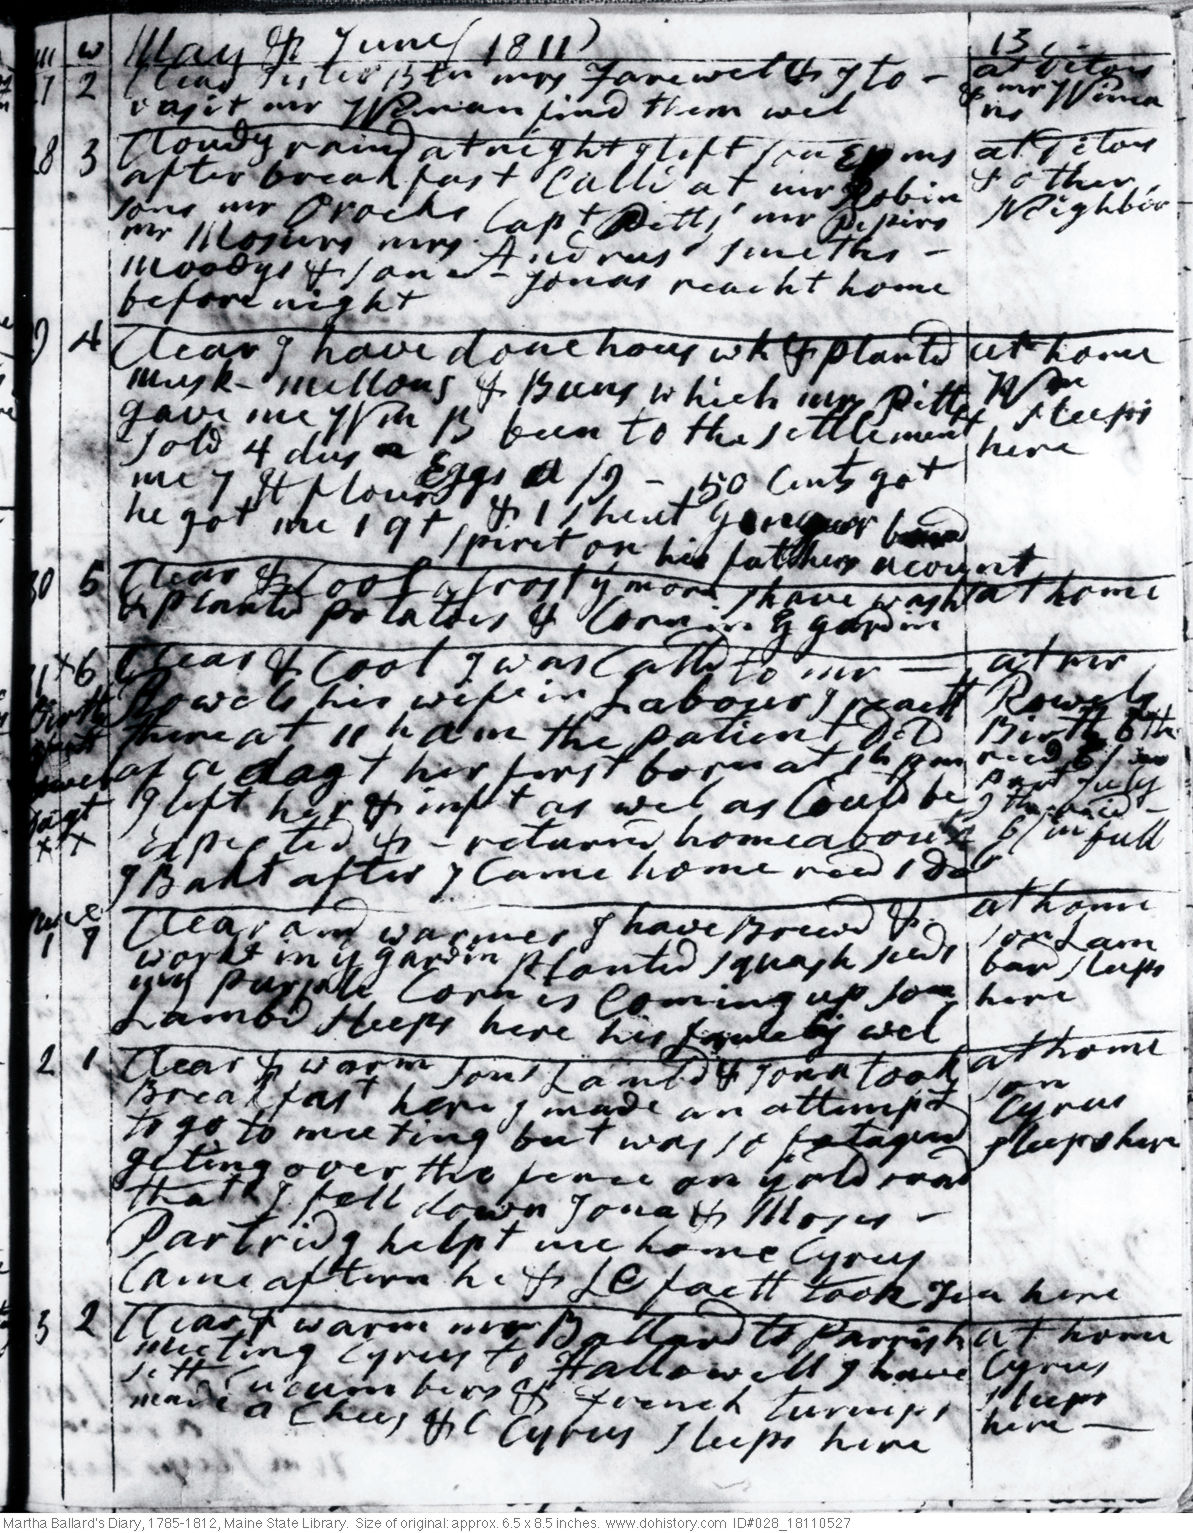 m w May & June (1811) 13
27 2 Clear Sister Btn mrs Farewell & I to - at Sitons
vasit mr Wiman find them wel & mr Wiman
ns
28 3 Cloudy raind at night I left son Epms at Sitons
after breakfast Calld at mr Robin & other
sons mr Crocks Capt Pitts' mr Pipirs Neighbor
mr Mosiers mrs Andrus' Smeths -
Moodys & sone - Jonas reacht home
before night
29 4 Clear I have done hous wk & plantd at home
musk-mellons & Buns which mrs Pitts Wm
gave me Wm B been to the settlement sleeps
Sold 4 dus n Eggs a /9 - 50 Cents got here
me 7 lt flour & 1 sheat
he got me 1 qt spirit on his fathers acount
30 5 Clear & Cool a frosty morn I have washt at home
& plantd potatoes & Corn in ye gardin
31 x 6 Clear & Cool I was Calld to mr - at mr
Birth Rowels his wife in Labour I reacht Rowels
there at 11 h a m the patient DD Birth 6th
Rowel of a dagt her first born at 1 h pm recd 6/
dagt I left her & inft as wel as Could be
x x Expected & - returnd home about 6/ in full
I Bakt after I Came home recd 1 Do
June
1 7 Clear and warmer I have Brewd & at home
workt in ye gardin Plantd squash seeds son Lam
my purple Corn is Coming up son bard sleeps
Lambd sleeps here his famely is wel here
2 1 Clear & warm Sons Lambd & Jona took at home
Breakfast here I made an attempt son
to go to meeting but was so fatagud Cyrus
geting over the fence on ye old road sleeps here
that I fell down Jona & Moses -
Partridg helpt me home Cyrus
Came aftern he & LC faett took Tea here
3 2 Clear & warm mr Ballard to Parrish at home
meeting Cyrus to Hallowell I have Cyrus
sett Cucumbers & French turnips sleeps
made a Chees & C Cyrus sleeps here here -
Martha Ballard's Diary, 1785-1812, Maine State Library. Size of original: approx. 6.5 x 8.5 inches. www.dohistory.com ID#028_18110527